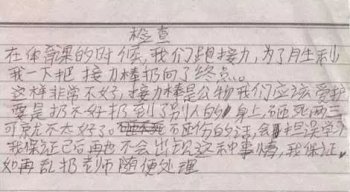 检查
在体育课的时候,我们跑接力,为了胜利
我一下把接力棒扔向了终点。
这样非常不好,接力棒是公物我们应该爱护
要是扔不好扔到了别人的身上,砸死两三
可就不太好了。不砸伤的话,会耽误学习
我保证已后再也不会出现这种事情,我保证
如再乱扔老师随便处理